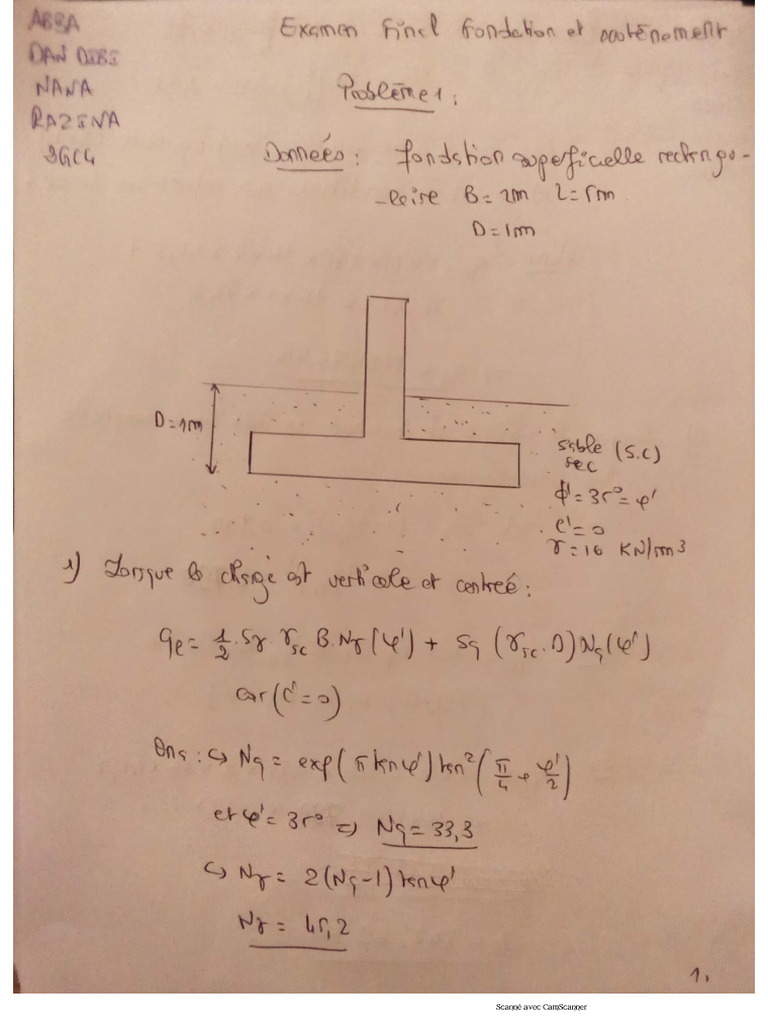 ABBA
DAN DIBI
NANA
RAZINA
3GC4
Examen Final Fondation et soutènement
Problème 1:
Données: fondation superficielle rectangu-
-laire B=2m L=5m
D=1m
D=1m
sable (S.C)
sec
ϕ'=35°=φ'
C'=0
γ=16 KN/m3
1) Lorsque la charge est verticale et centreé:
qe= 1/2.Sγ.γsc B.Nγ(φ')+ Sq (γsc.D)Nq(φ')
car(C'=0)
Ona: ↪ Nq= exp(π tanφ')tan²(π/4 + φ'/2)
et φ'=35° => Nq=33,3
↪ Nγ= 2(Nq-1)tanφ'
Nγ= 45,2
1.
Scanné avec CamScanner